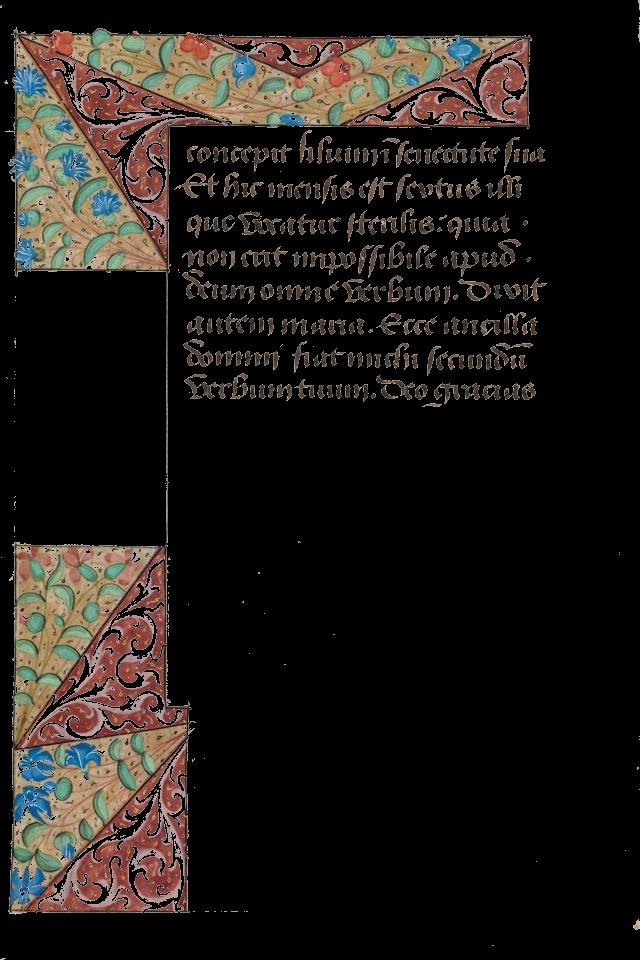 concepit filium ī senectute sua
Et hic mensis est sextus illi
que vocatur sterilis: quia
non erit impossibile apud
deum omne verbum. Dixit
autem maria. Ecce ancilla
domini fiat michi secundū
verbum tuum. Deo gracias